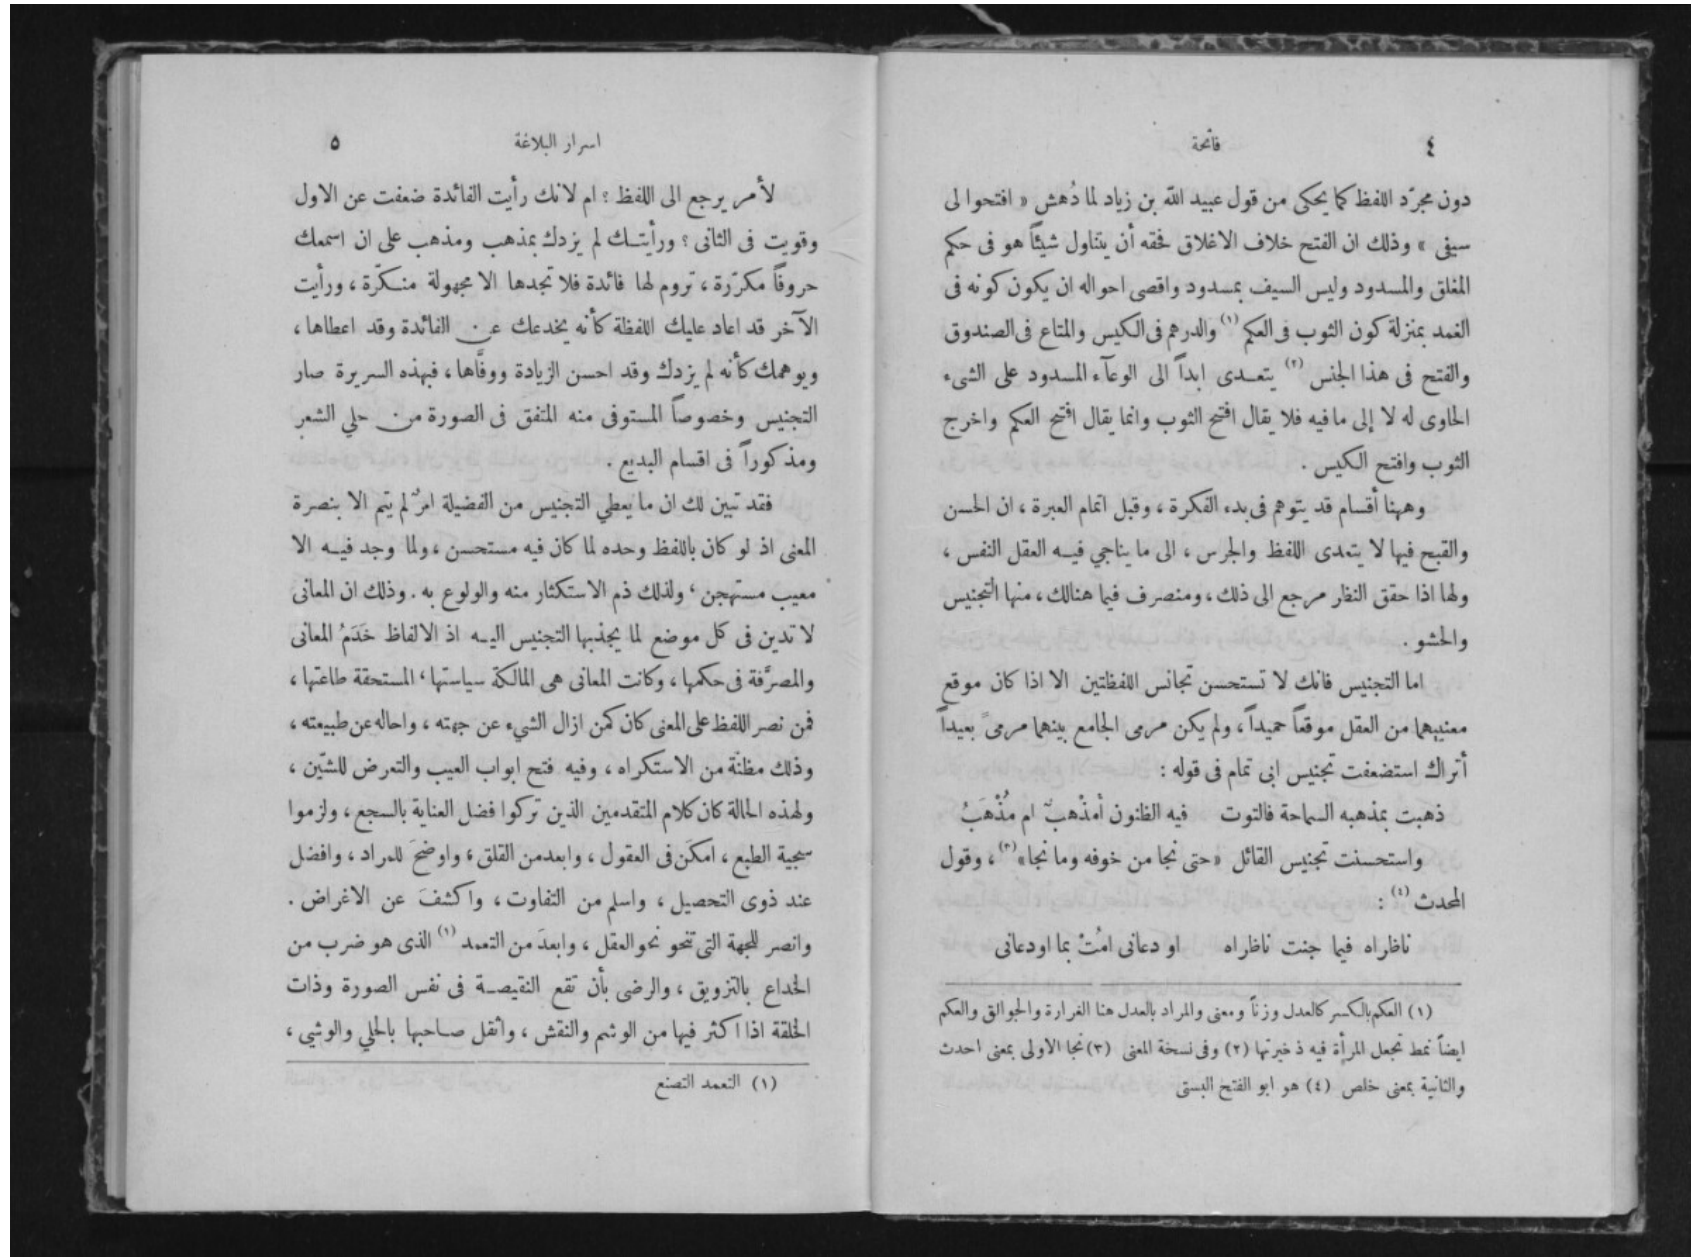 ٤
فاتحة
دون مجرّد اللفظ كما يحكى من قول عبيد الله بن زياد لما دُهش « افتحوا لى
سيفى » وذلك ان الفتح خلاف الاغلاق فحقه أن يتناول شيئاً هو فى حكم
المغلق والمسدود وليس السيف بمسدود واقصى احواله ان يكون كونه فى
الغمد بمنزلة كون الثوب فى العكم (١) والدرهم فى الكيس والمتاع فى الصندوق
والفتح فى هذا الجنس (٢) يتعدى ابداً الى الوعآء المسدود على الشىء
الحاوى له لا إلى ما فيه فلا يقال افتح الثوب وانما يقال افتح العكم واخرج
الثوب وافتح الكيس .
وههنا أقسام قد يتوهم فى بدء الفكرة ، وقبل اتمام العبرة ، ان الحسن
والقبح فيها لا يتعدى اللفظ والجرس ، الى ما يناجي فيه العقل النفس ،
ولها اذا حقق النظر مرجع الى ذلك ، ومنصرف فيما هنالك ، منها التجنيس
والحشو .
اما التجنيس فانك لا تستحسن تجانس اللفظتين الا اذا كان موقع
معنييهما من العقل موقعاً حميداً ، ولم يكن مرمى الجامع بينهما مرمىً بعيداً
أتراك استضعفت تجنيس ابى تمام فى قوله :
ذهبت بمذهبه السماحة فالتوت فيه الظنون أمذْهبٌ ام مُذْهَبُ
واستحسنت تجنيس القائل «حتى نجا من خوفه وما نجا»(٣) ، وقول
المحدث (٤) :
ناظراه فيما جنت ناظراه او دعانى امُتْ بما اودعانى
(١) العكم بالكسر كالعدل وزناً ومعنى والمراد بالعدل هنا الغرارة والجوالق والعكم
ايضاً نمط تجعل المرأة فيه ذخيرتها (٢) وفى نسخة المعنى (٣) نجا الاولى بمعنى احدث
والثانية بمعنى خلص (٤) هو ابو الفتح البستى
اسرار البلاغة
٥
لأمر يرجع الى اللفظ ؟ ام لانك رأيت الفائدة ضعفت عن الاول
وقويت فى الثانى ؟ ورأيتك لم يزدك بمذهب ومذهب على ان اسمعك
حروفاً مكرّرة ، تروم لها فائدة فلا تجدها الا مجهولة منكّرة ، ورأيت
الآخر قد اعاد عليك اللفظة كأنه يخدعك عن الفائدة وقد اعطاها ،
ويوهمك كأنه لم يزدك وقد احسن الزيادة ووفَّاها ، فبهذه السريرة صار
التجنيس وخصوصاً المستوفى منه المتفق فى الصورة من حلي الشعر
ومذكوراً فى اقسام البديع .
فقد تبين لك ان ما يعطي التجنيس من الفضيلة امرٌ لم يتم الا بنصرة
المعنى اذ لو كان باللفظ وحده لما كان فيه مستحسن ، ولما وجد فيه الا
معيب مستهجن ، ولذلك ذم الاستكثار منه والولوع به . وذلك ان المعانى
لا تدين فى كل موضع لما يجذبها التجنيس اليه اذ الالفاظ خَدَمُ المعانى
والمصرَّفة فى حكمها ، وكانت المعانى هى المالكة سياستها ، المستحقة طاعتها ،
فمن نصر اللفظ على المعنى كان كمن ازال الشيء عن جهته ، واحاله عن طبيعته ،
وذلك مظنّة من الاستكراه ، وفيه فتح ابواب العيب والتعرض للشّين ،
ولهذه الحالة كان كلام المتقدمين الذين تركوا فضل العناية بالسجع ، ولزموا
سجية الطبع ، امكَن فى العقول ، وابعد من القلق ، واوضحَ للمراد ، وافضل
عند ذوى التحصيل ، واسلم من التفاوت ، واكشفَ عن الاغراض .
وانصر للجهة التى تنحو نحو العقل ، وابعدَ من التعمد (١) الذى هو ضرب من
الخداع بالتزويق ، والرضى بأن تقع النقيصة فى نفس الصورة وذات
الخلقة اذا اكثر فيها من الوشم والنقش ، واثقل صاحبها بالحلي والوشي ،
(١) التعمد التصنع